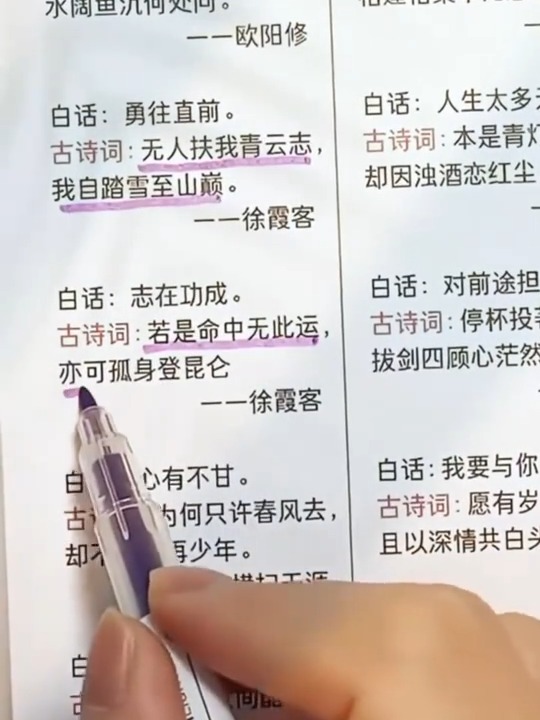 水阔鱼沉何处问。
——欧阳修
白话：勇往直前。
古诗词：无人扶我青云志，
我自踏雪至山巅。
——徐霞客
白话：志在功成。
古诗词：若是命中无此运，
亦可孤身登昆仑
——徐霞客
白 心有不甘。
古 为何只许春风去，
却不 再少年。
白
古
白话：人生太多
古诗词：本是青灯
却因浊酒恋红尘
白话：对前途担
古诗词：停杯投
拔剑四顾心茫然
白话：我要与你
古诗词：愿有岁
且以深情共白头